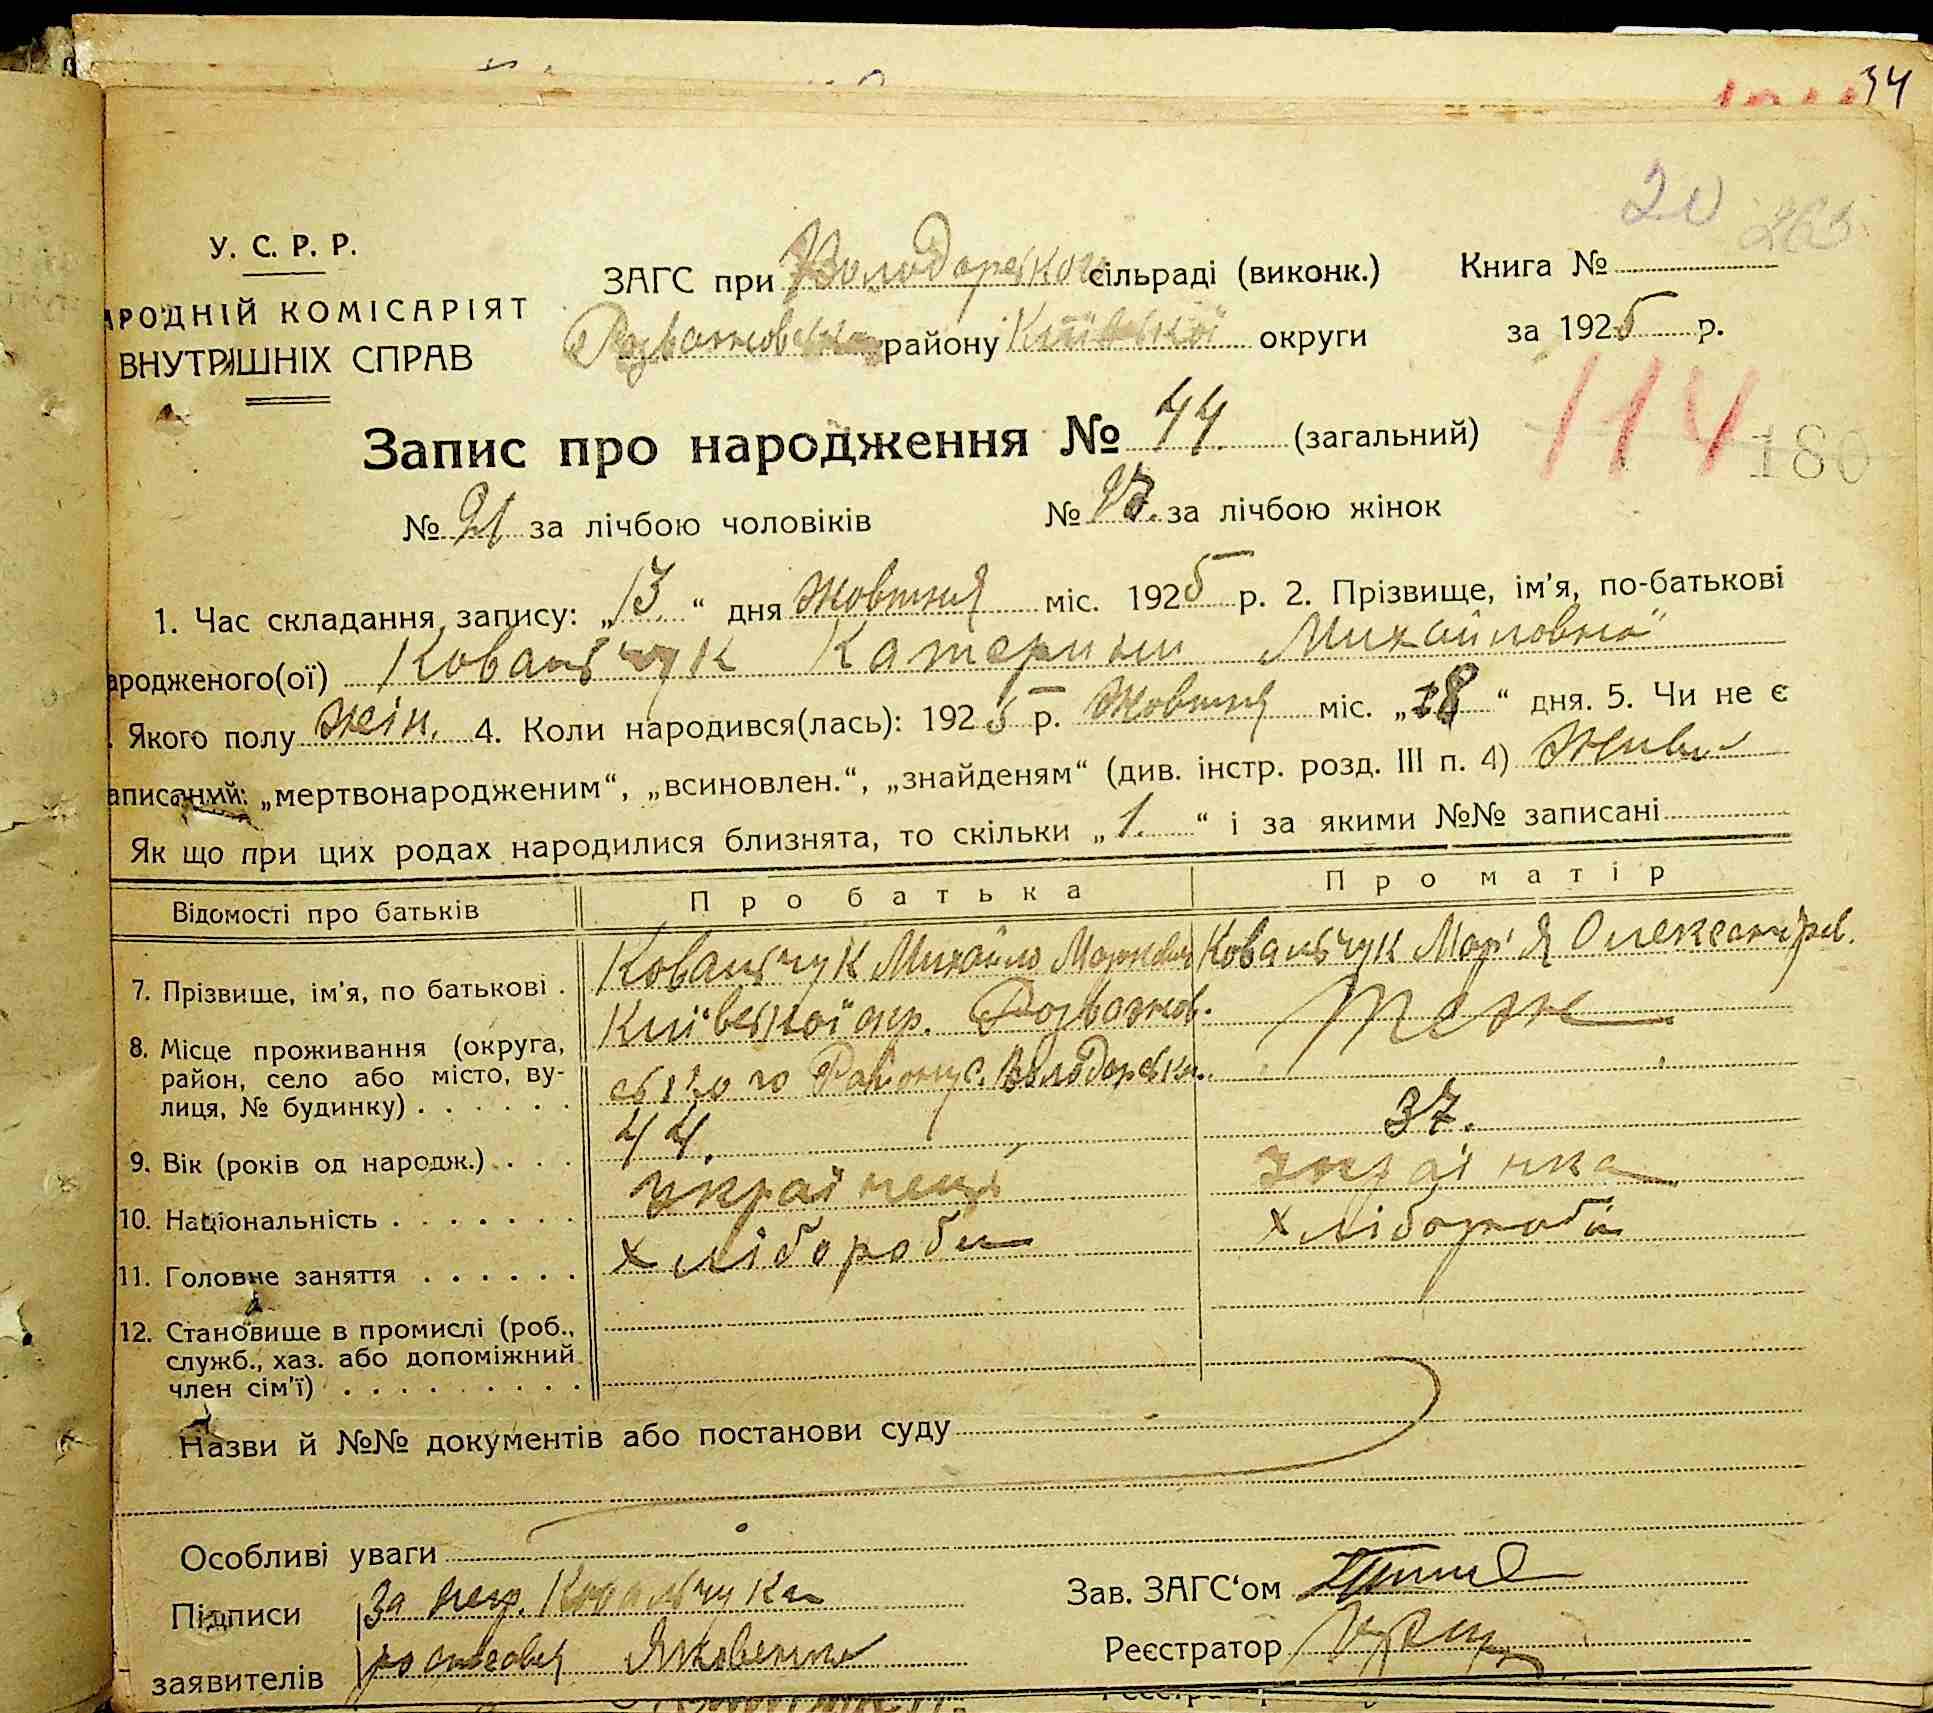 34
20 263
У. С. Р. Р.
АРОДНІЙ КОМІСАРІЯТ
ВНУТРІШНІХ СПРАВ
ЗАГС при Володарській сільраді (виконк.) Книга №
Розважівського району Київської округи за 1925 р.
Запис про народження № 44 (загальний) 114 180
№ 21 за лічбою чоловіків № 23. за лічбою жінок
1. Час складання запису: „13“ дня Жовтня міс. 1925 р. 2. Прізвище, ім'я, по-батькові
ародженого(ої) Ковальчук Катерини Михайловна
Якого полу жін. 4. Коли народився(лась): 1925 р. Жовтня міс. „18“ дня. 5. Чи не є
аписаний: „мертвонародженим“, „всиновлен.“, „знайденям“ (див. інстр. розд. III п. 4) Живи
Як що при цих родах народилися близнята, то скільки „1.“ і за якими №№ записані
Відомості про батьків Про батька Про матір
7. Прізвище, ім'я, по батькові . Ковальчук Михайло Маркович Ковальчук Мар'я Олександров.
8. Місце проживання (округа, район, село або місто, вулиця, № будинку) Київської окр. Розважов. Теж
ського Району с. Володарська.
9. Вік (років од народж.) 44. 37.
10. Національність українець українка
11. Головне заняття хлібороби хлібороби
12. Становище в промислі (роб.,
служб., хаз. або допоміжний
член сім'ї)
Назви й №№ документів або постанови суду
Особливі уваги
Підписи За негр. Ковальчука Зав. ЗАГС'ом
заявителів росписався Яковенко Реєстратор